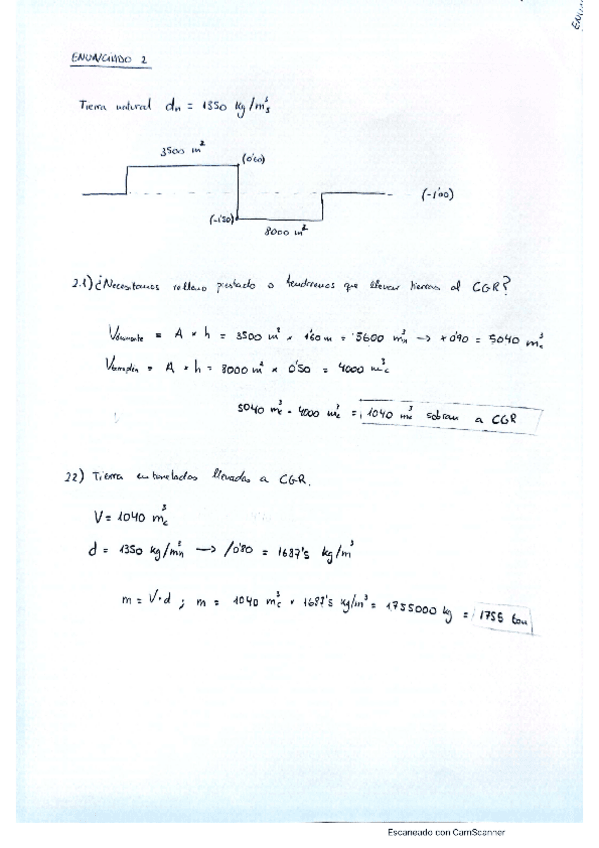 ENUNCIADO 2
Tierra natural dn = 1350 kg/m³s
3500 m²
(0'60)
(-1'00)
(-1'50)
8000 m²
2.1) ¿Necesitamos relleno prestado o tendremos que llevar tierras al CGR?
Vdesmonte = A × h = 3500 m² × 1'60 m = 5600 m³n → × 0'90 = 5040 m³c
Vterraplén = A × h = 8000 m² × 0'50 = 4000 m³c
5040 m³c - 4000 m³c = 1040 m³c sobran a CGR
22) Tierra en toneladas llevadas a CGR.
V = 1040 m³c
d = 1350 kg/m³n → /0'80 = 1687'5 kg/m³
m = V · d ; m = 1040 m³c × 1687'5 kg/m³ = 1755000 kg = 1755 ton
Escaneado con CamScanner